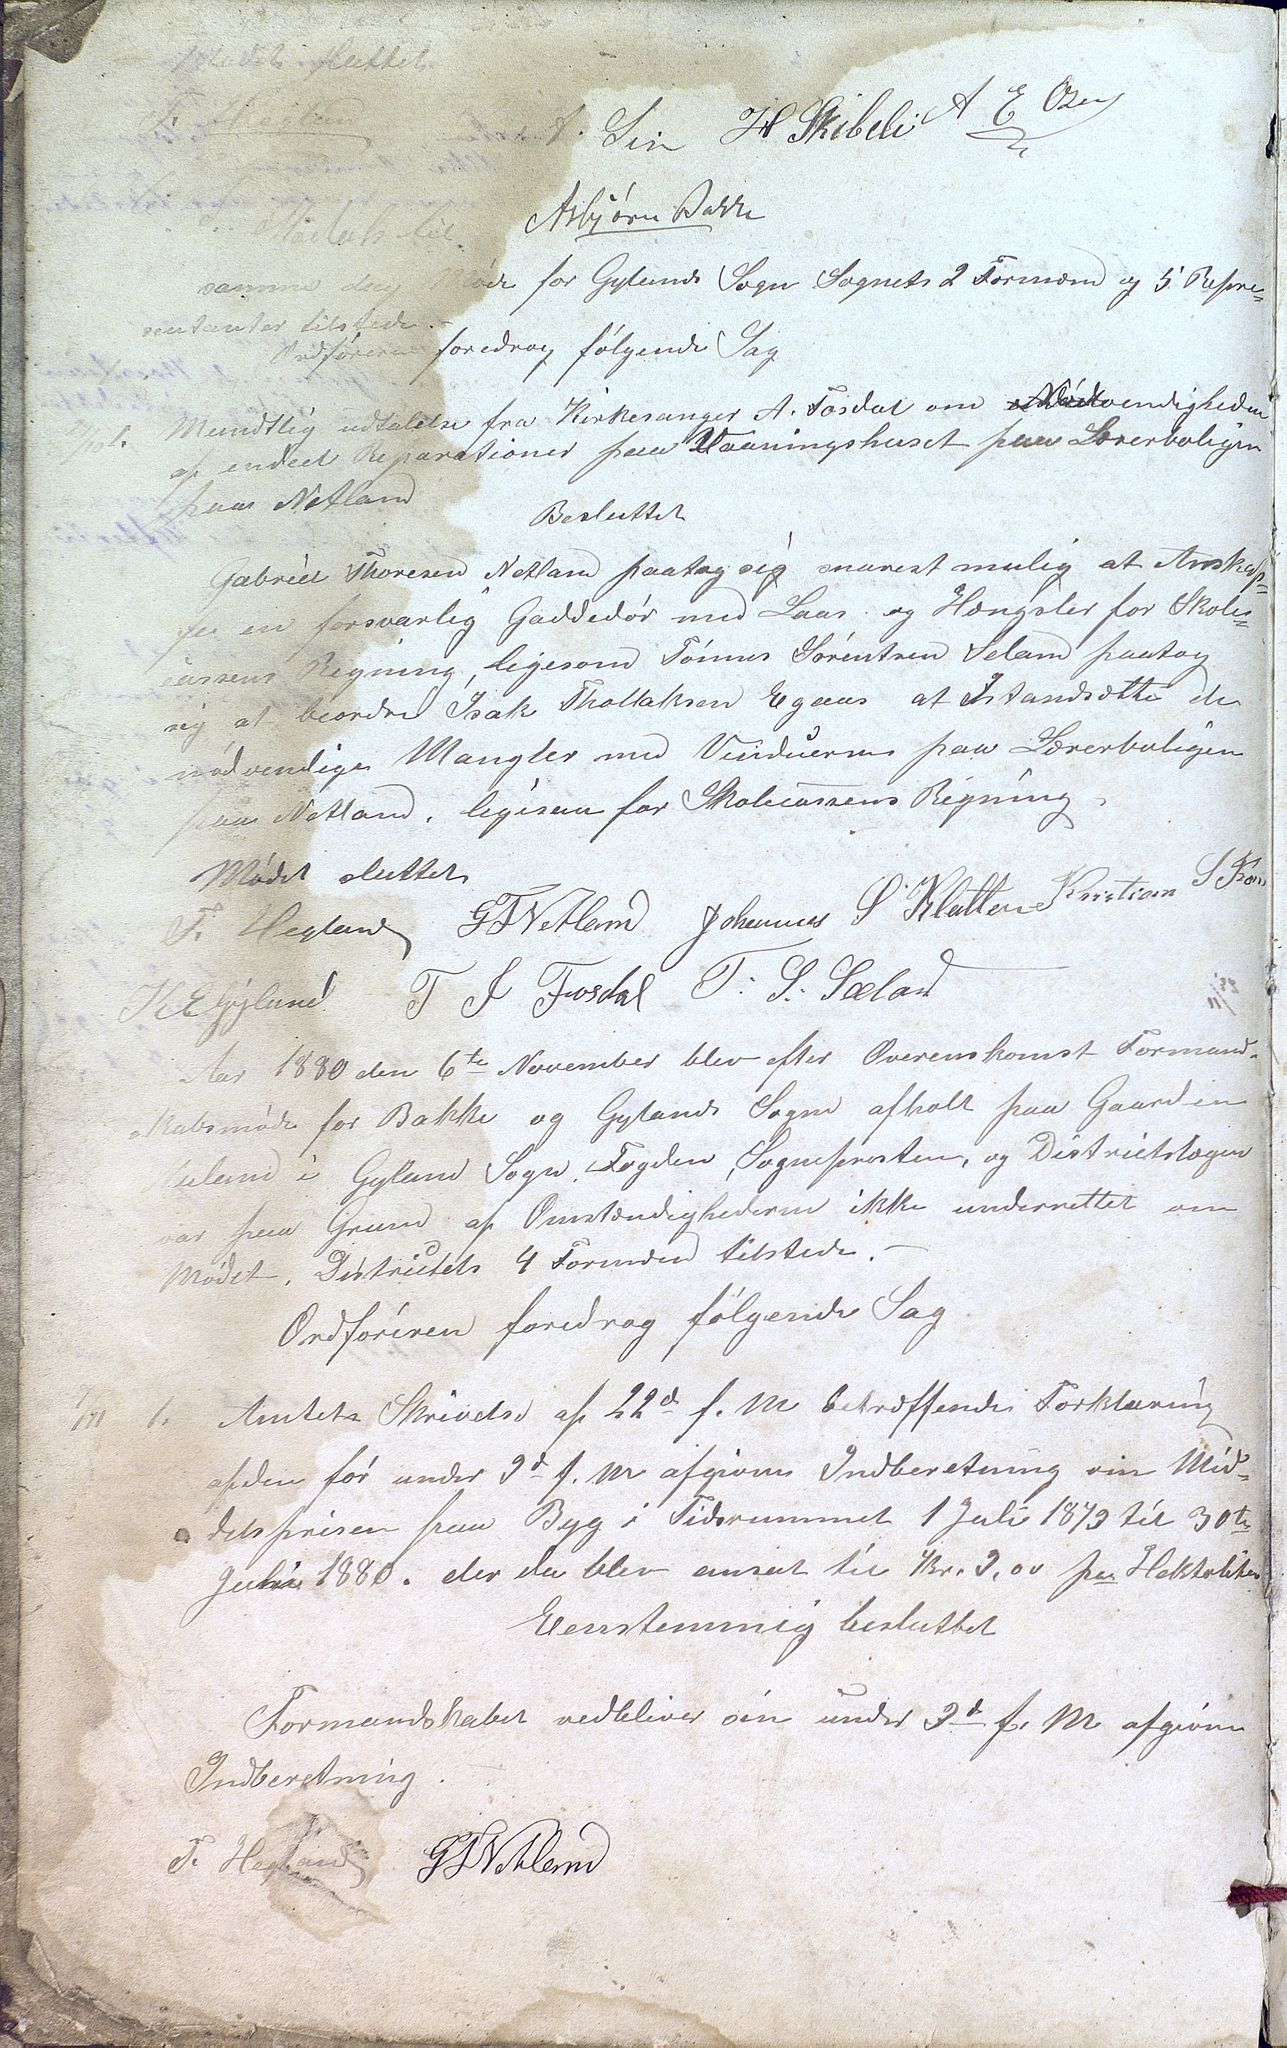 Mødet sluttet
T. Hegland A. Sin H Skibeli A E Osen
Asbjørn Bakke
samme dag Møde for Gylands Sogn Sognets 2 Formænd og 5 Repræ-
sentanter tilstede.
Ordføreren foredrog følgende Sag
1. Mundtlig udtalelse fra Kirkesanger A. Fosdal om Nødvendigheden
af endeel Reparationer paa Vaaningshuset paa Lærerboligen
paa Netland
Besluttet
Gabriel Thoresen Netland paatog sig snarest mulig at Anskaf-
fe en forsvarlig Gaddedør med Laas og Hængsler for Skole-
cassens Regning, ligesom Tønnes Sørentsen Seland paatog
sig at beordre Isak Thollaksen Egaas at Istandsætte de
nødvendige Mangler med Vinduerne paa Lærerboligen
paa Netland, ligesaa for Skolecassens Regning.
Mødet sluttet
T. Hegland G T Netland Johannes S Klatten Kristian S
K E Gylland T J Fosdal T. S. Sæland
Aar 1880 den 6te November blev efter Overenskomst Formand-
skabsmøde for Bakke og Gylands Sogne afholt paa Gaarden
i Gyland Sogn. Fogden, Sogneprosten, og Districtslægen
var paa Grund af Omstændighederne ikke underrettet om
Mødet. Districtets 4 Formænd tilstede.
Ordføriren foredrog følgende Sag
1. Amtets Skrivelse af 22d f. M betræffende Forklaring
af den før under 3d f. M afgivne Indberetning om Mid-
delsprisen paa Byg i Tidsrummet 1 Juli 1879 til 30te
Juni 1880. der da blev ansat til Kr. 9,00 pr Hektoliter
Eenstemmig besluttet
Formandskabet vedbliver sin under 3d f. M afgivne
Indberetning.
T. Hegland G T Netland